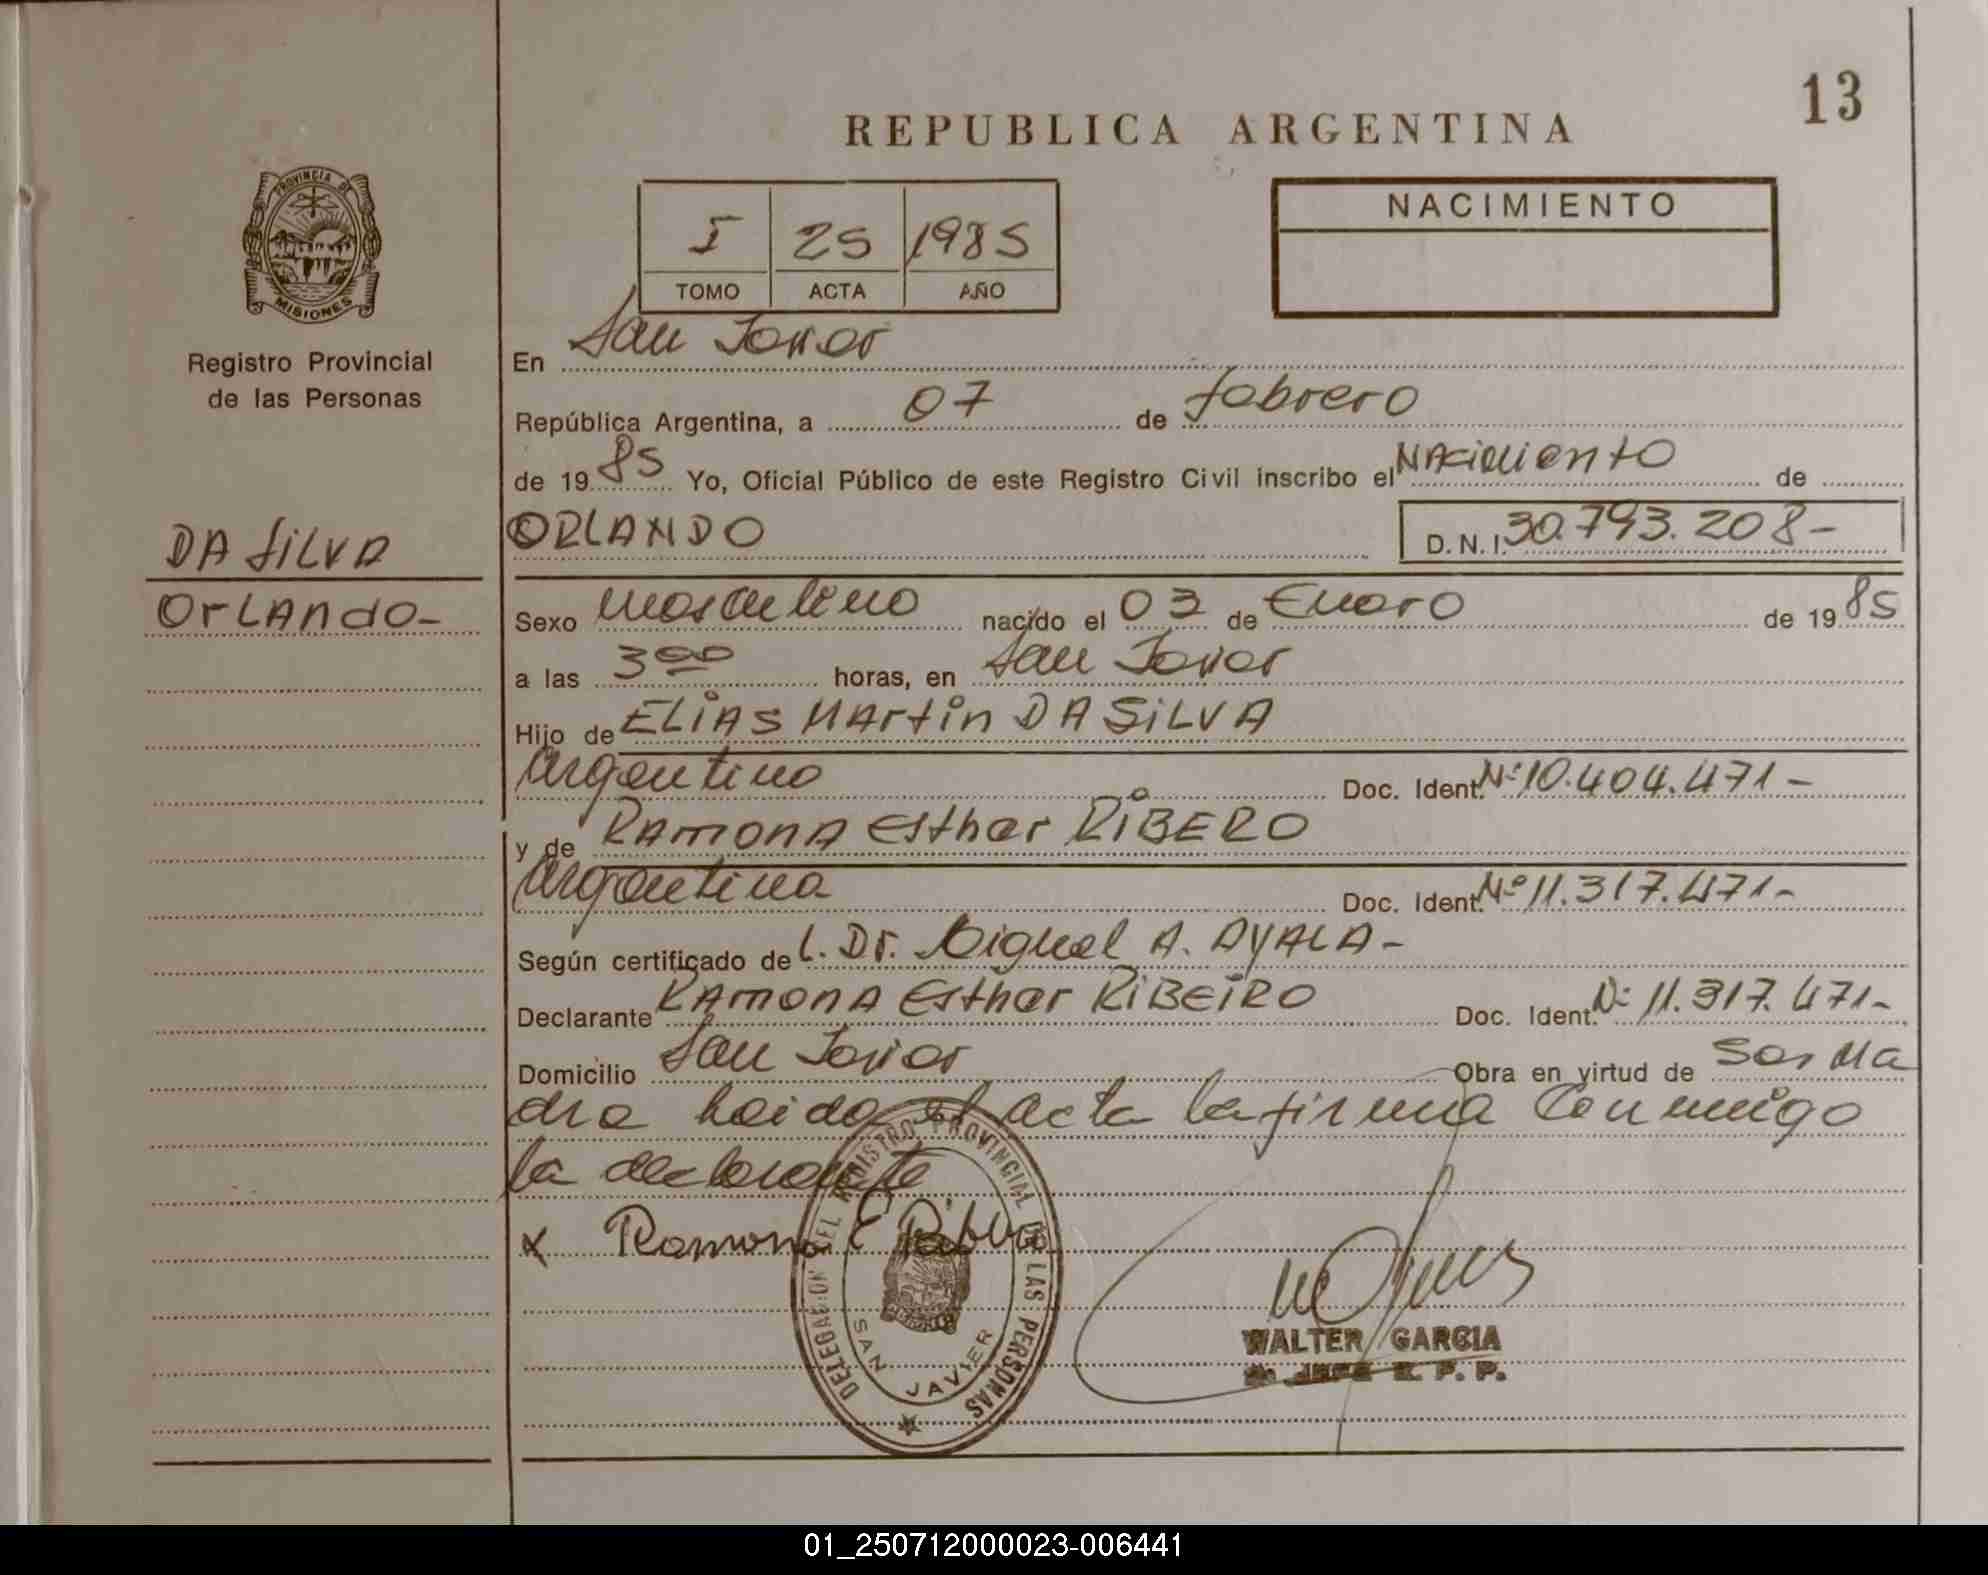 13
REPUBLICA ARGENTINA
PROVINCIA DE
MISIONES
Registro Provincial
de las Personas
I 25 1985
TOMO ACTA AÑO
NACIMIENTO
En San Javier
República Argentina, a 07 de febrero
de 1985 Yo, Oficial Público de este Registro Civil inscribo el Nacimiento de
DA SILVA
ORLANDO D. N. I. 30.793.208-
Orlando-
Sexo masculino nacido el 03 de Enero de 1985
a las 300 horas, en San Javier
Hijo de ELIAS MArtin DA SILVA
argentino Doc. Ident. Nº 10.404.471-
y de RAMONA Esther RIBERO
argentina Doc. Ident. Nº 11.317.471-
Según certificado de L. Dr. Miguel A. AYALA-
Declarante RAMONA Esther RIBEIRO Doc. Ident. Nº 11.317.471-
Domicilio San Javier Obra en virtud de Ser Ma
dre leida el acta la firma conmigo
la declarante
x Ramona E
DELEGACION DEL REGISTRO PROVINCIAL DE LAS PERSONAS
SAN JAVIER
WALTER GARCIA
JEFE R. P. P.
01_250712000023-006441